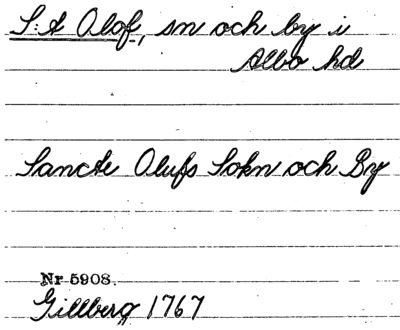 S:t Olof, sn och by i
Albo hd
Sancte Olufs Sokn och By
Nr 5908.
Gillberg 1767